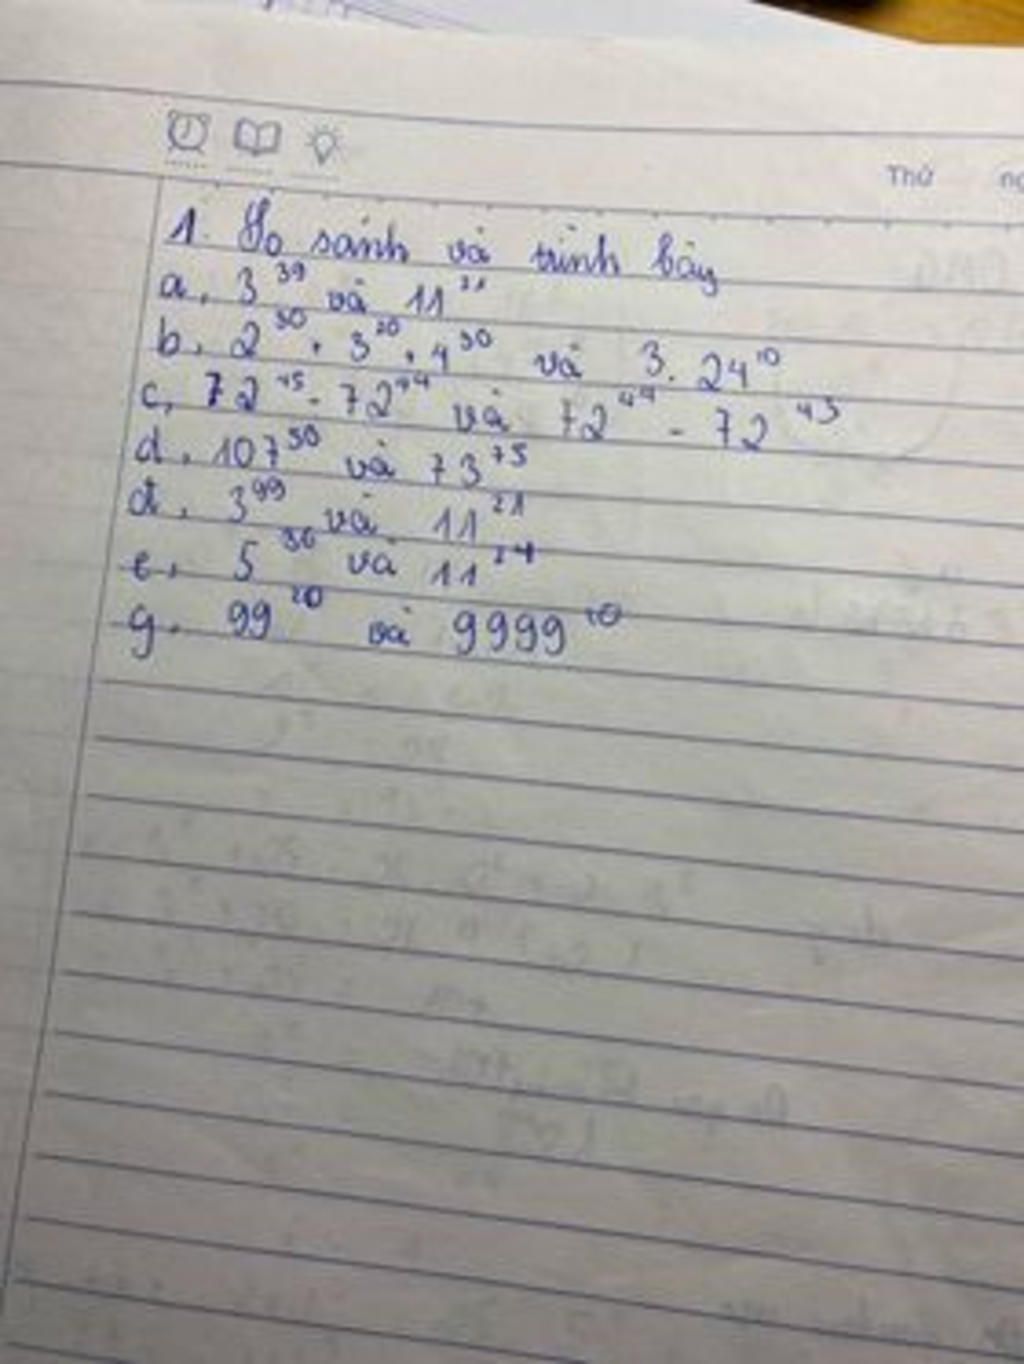 Thứ
1. So sánh và trình bày
a, 3³⁹ và 11²¹
b, 2³⁰ . 3³⁰ . 4³⁰ và 3. 24¹⁰
c, 72⁴⁵ - 72⁴⁴ và 72⁴⁴ - 72⁴³
d, 107⁵⁰ và 73⁷⁵
đ, 3⁹⁹ và 11²¹
e, 5³⁶ và 11²⁴
g. 99²⁰ và 9999¹⁰